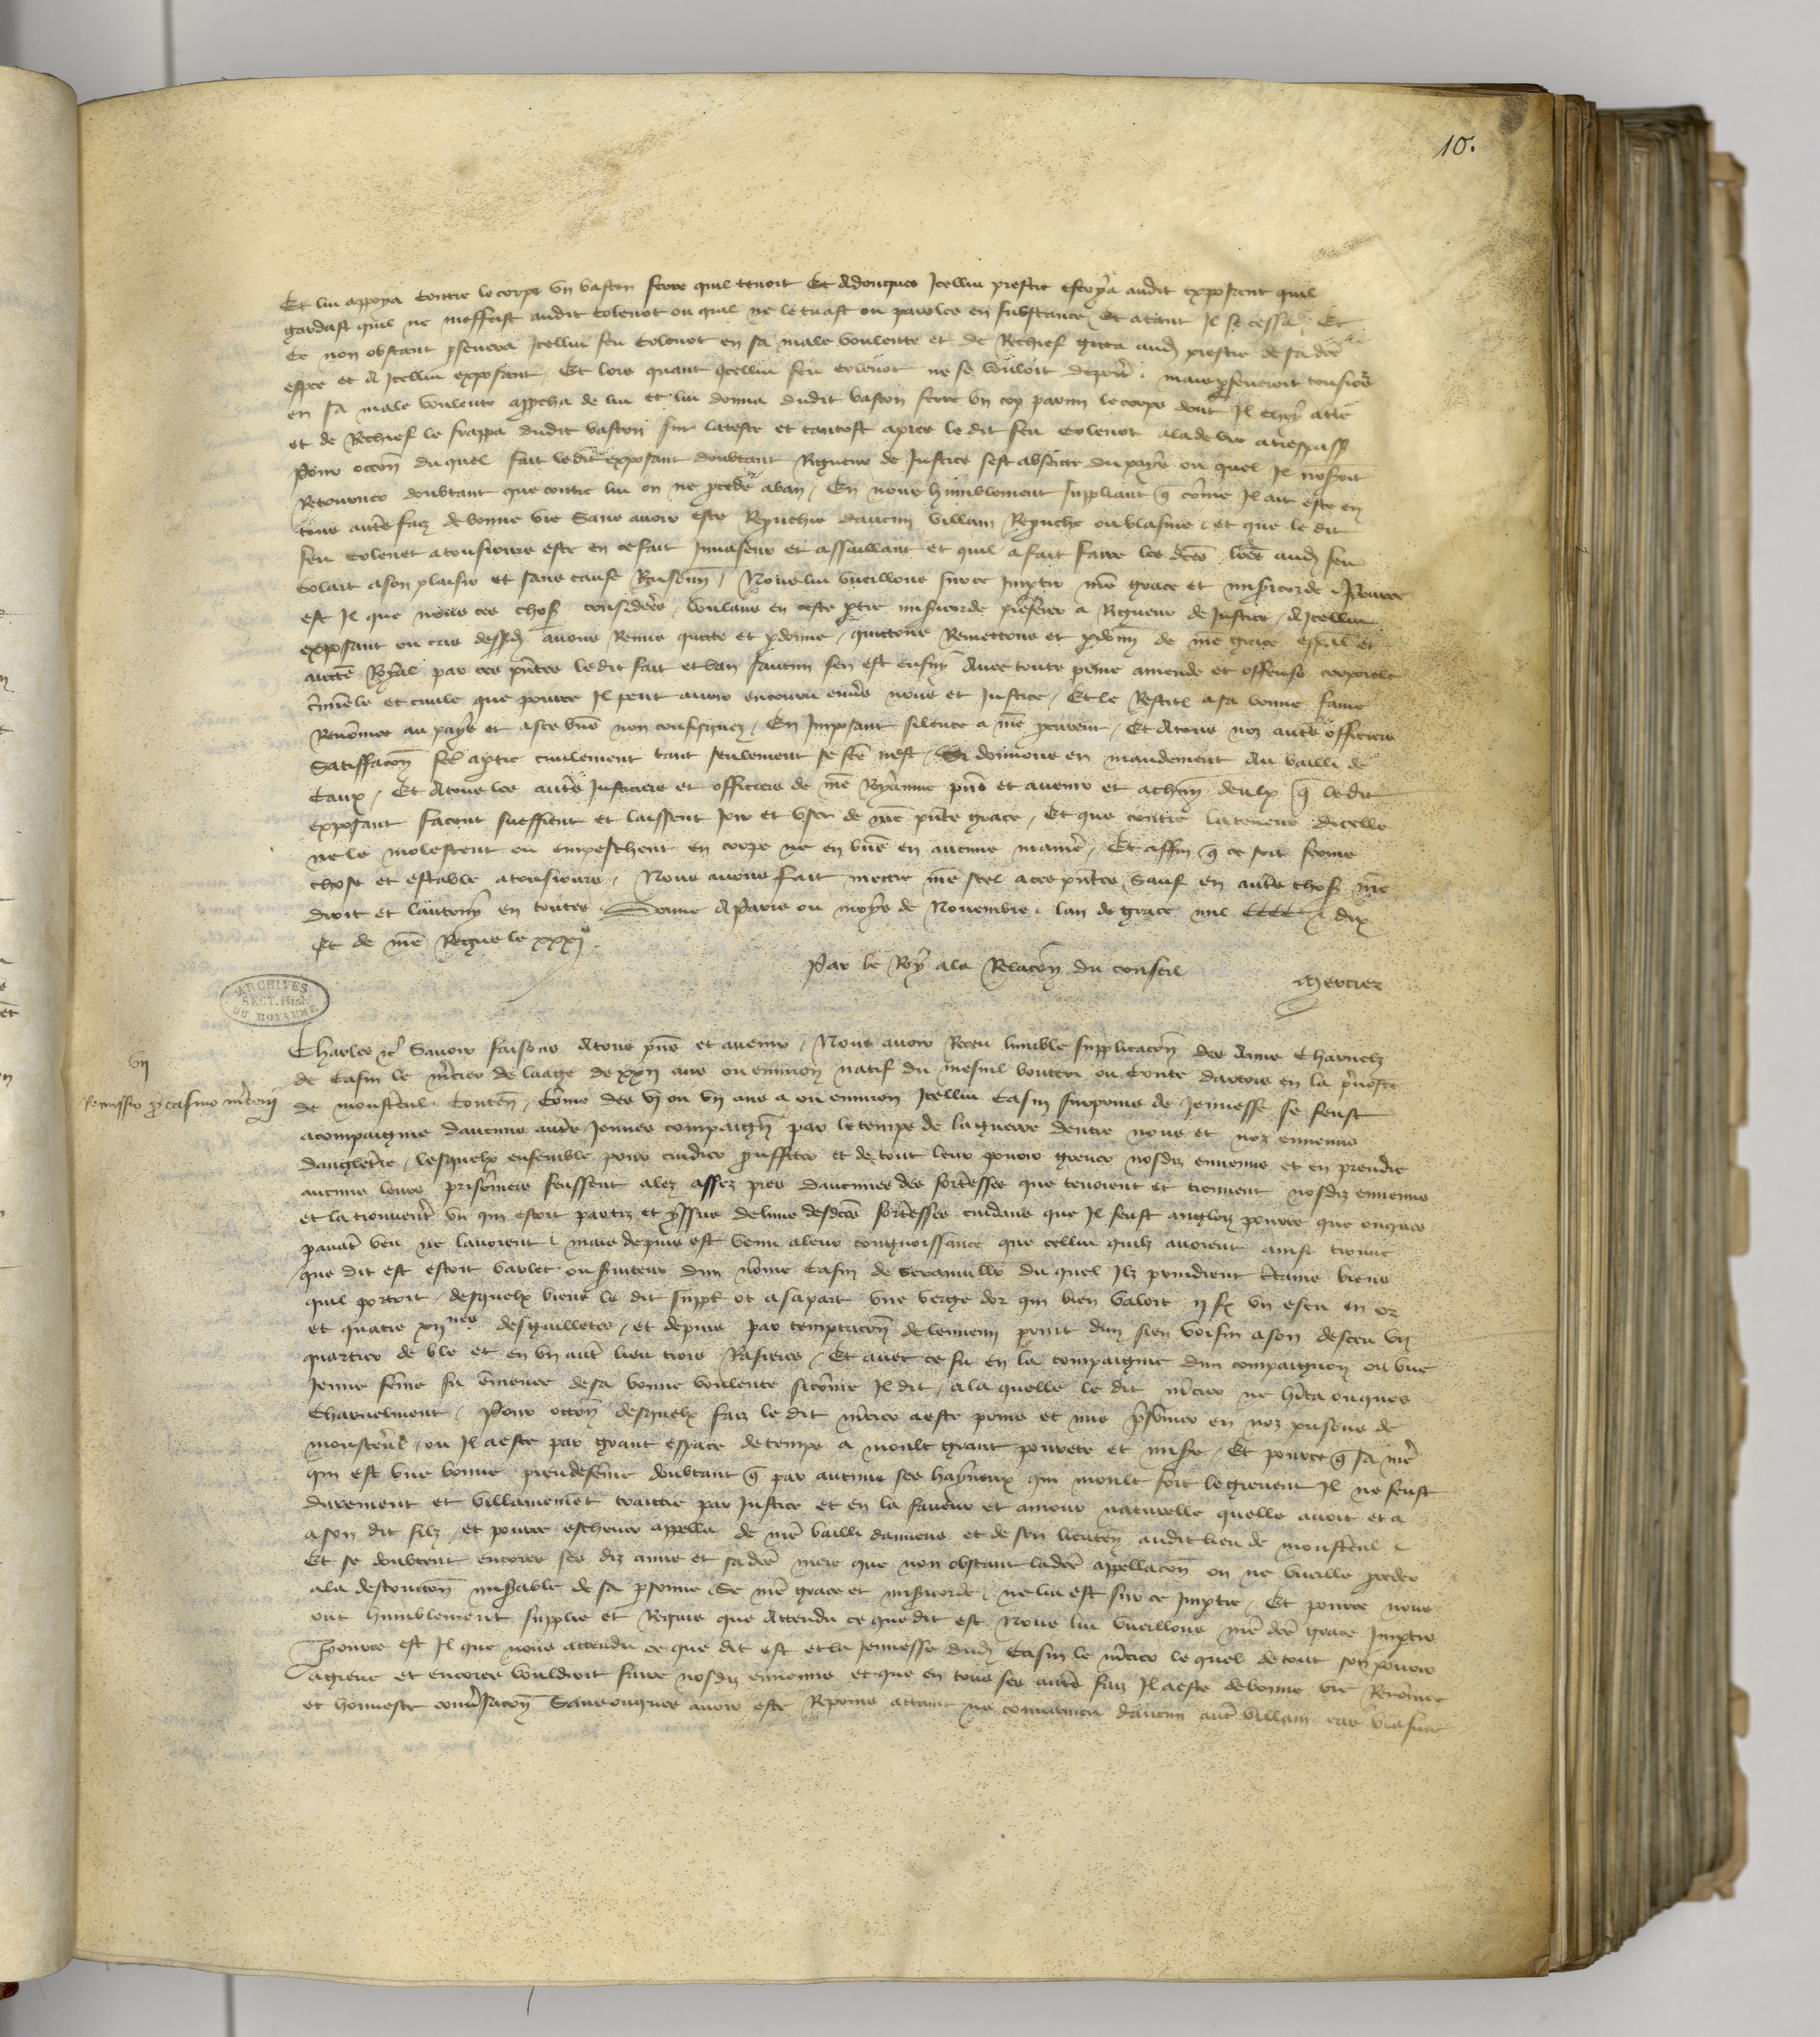 10.
Et lui appoya contre le corps un baston ferre quil tenoit Et adonques Icellui prestre escrya audit exposant quil
gardast quil ne meffeist audit Colenot ou quil ne le tuast ou paroles en substance Et atant Il se cessa Et
Ce non obstant psevera Icellui feu Colenot en sa male voulente et de Rechief getta aud prestre de sa dce
espee et a Icellui exposant Et lors quant Icellui feu Colenot ne se vouloit depor mais psevroit tousiors
en sa male voulente appcha de lui et lui donna dudit baston ferre un cop parmi le corps dont Il chey atre
et de Rechief le frappa dudit baston sur lateste et tantost apres le dit feu Colenot ala de vie atrespass
Pour occon du quel fait ledit exposant doubtant Rigueur de Justice sest absente du pays ou quel Il noseroit
Retourner doubtant que contre lui on ne pcede avan En nous humblement suppliant q come Il ait este en
tous autes faiz de bonne vie sans avoir este Repuchie daucun villain Repuche ou blasme et que le dit
feu Colenet atousiours este en ce fait Invaseur et assaillant et quil a fait faire les dces aud feu
Colart ason plaisir et sans cause Raisonn Nous lui vueillons sur ce Imptir nre grace et misicorde Pource
est Il que nous ces chos considerees voulans en ceste ptie misicorde preferer a Rigueur de Justice A Icellui
exposant ou cas dessd avons Remis quitte et pdonne quittons Remettons et pdonn de nre grace espal et
aucte Royal par ces pntes ledit fait et ban saucun sen est ensuy Avec toute peine amende et offense corporele
cminele et civile que pource Il peut avoir encouru envs nous et Justice Et le Restit asa bonne fame
Renomee au pays et ases biens non confisquez En Imposant silence a nre procureur Et Atous noz autes officiers
Satiffacon fce aptie civilement tant seulement se fce nest Si donnons en mandement Au bailli de
Caux Et Atous les autes Justiciers et officiers de nre Royaume pns et avenir et achun deulx q ledit
exposant facent sueffrent et laissent joir et user de nre pnte grace Et que contre la teneur dicelle
ne le molestent ou empeschent en corps ne en biens en aucune maniere Et affin q ce soit ferme
chose et estable atousiours Nous avons fait mettre nre seel aces pntes Sauf en autes chos nre
droit et lautruy en toutes Donne A Paris ou moys de Novembre lan de grace mil CCCC dix
Et de nre Regne le xxxj
Par le Roy ala Relacon du conseil Mercier
ARCHIVES
SECT. HIST.
DU ROYAUME
vij
Remissio pro Casino mcerij
Charles &c Savoir faisons Atous pns et avenir Nous avoir Receu lumble supplicacon des Amis Charnelz
de Casin le mcier de laage de xxij ans ou environ natif du mesnil bouteri ou Conte dartois en la pvoste
de monstereul Conten Come des vj ou vij ans a ou environ Icellui Casin surpris de Jennesse se feust
acompaigne daucuns autes Jeunes compaign par le temps de laguerre dentre nous et noz ennemis
dangleterre lesquelx ensemble pour cuidier puffiter et de tout leur povoir grever nosdiz ennemis et en prendre
aucuns leurs prisonniers feussent alez assez pres daucunes des forteresses que tenoient et tiennent nosdiz ennemis
et la trouverent un qui estoit partiz et yssus de lune desdces forteresses cuidans que Il feust angloiz pource que onques
pavant veu ne lavoient mais depuis est venu aleur congnoissance que cellui quilz avoient ainsi trouve
que dit est estoit varlet ou serviteur dun nome Casin de du quel Ilz prindrent ctains biens
quil portoit desquelx biens le dit suppl ot asapart une verge dor qui bien valoit ij fs un escu en or
et quatre xijnes desguilletes et depuis par temptacon de lennemi print dun sien voisin ason desceu vij
quartiers de ble et en un aut lieu trois Rasieres Et avec ce fu en la compaignie dun compaignon ou une
Jeune feme fu emenee desa bonne voulente sicome Il dit ala quelle le dit mcier ne hita onques
Charnelment Pour occon desquelx faiz le dit mcier aeste prins et mis prisonnier en noz prisons de
monstereul ou Il aeste par grant espace de temps a moult grant povrete et misere Et pource q sa mere
qui est une bonne preudefeme doubtant q par aucuns ses hayneux qui moult fort le grievent Il ne feust
durement et villainement traittie par Justice et en la faveur et amour naturelle quelle avoit et a
a son dit filz et pource eschever appella de nre bailli damiens et de son lieuten audit lieu de monstereul
Et se doubtent encores ses diz amis et sa dce mere que non obstant ladce appellacon on ne vueille pceder
ala destruccon misable de sa psonne Se nre grace et misicorde ne lui est sur ce Imptie Et pource nous
ont humblement supplie et Requis que Attendu ce que dit est Nous lui vueillons nre dce grace Imptir
Pource est Il que nous attendu ce que dit est et la Jennesse dud Casin le mcier le quel de tout son povoir
agreve et encores vouldroit faire nosdiz ennemis et que en tous ses autes faiz Il aeste de bonne vie Renomee
et honneste convsacon Sans onques avoir este Reprins attaint ne convaincu daucun aut villain cas blasme